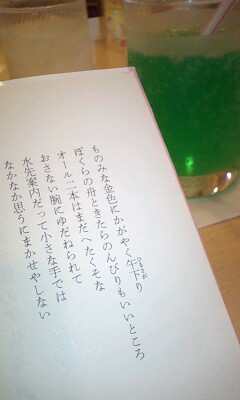 ものみな金色にかがやく午下り
ぼくらの舟ときたらのんびりもいいところ
オール二本はまだへたくそな
おさない腕にゆだねられて
水先案内だって小さな手では
なかなか思うにまかせやしない